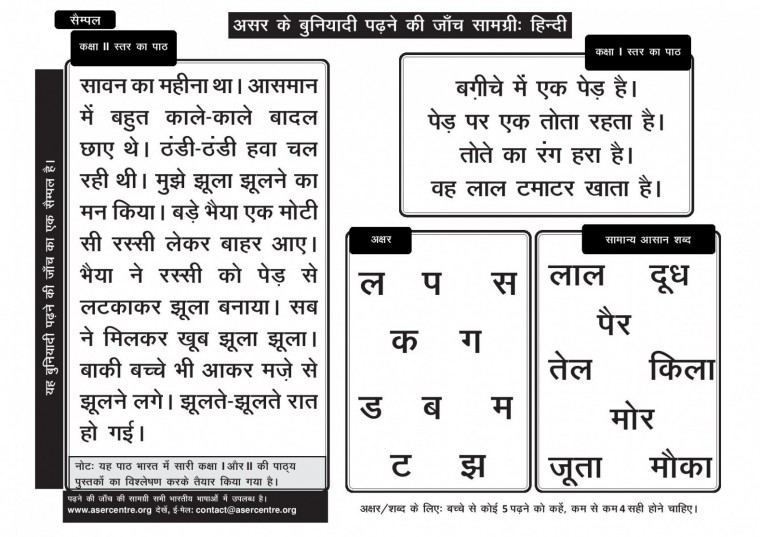 सैम्पल
असर के बुनियादी पढ़ने की जाँच सामग्रीः हिन्दी
यह बुनियादी पढ़ने की जाँच का एक सैम्पल है।
कक्षा II स्तर का पाठ
सावन का महीना था। आसमान
में बहुत काले-काले बादल
छाए थे। ठंडी-ठंडी हवा चल
रही थी। मुझे झूला झूलने का
मन किया। बड़े भैया एक मोटी
सी रस्सी लेकर बाहर आए।
भैया ने रस्सी को पेड़ से
लटकाकर झूला बनाया। सब
ने मिलकर खूब झूला झूला।
बाकी बच्चे भी आकर मज़े से
झूलने लगे। झूलते-झूलते रात
हो गई।
नोटः यह पाठ भारत में सारी कक्षा I और II की पाठ्य
पुस्तकों का विश्लेषण करके तैयार किया गया है।
पढ़ने की जाँच की सामग्री सभी भारतीय भाषाओं में उपलब्ध है।
www.asercentre.org देखें, ई-मेलः contact@asercentre.org
कक्षा I स्तर का पाठ
बग़ीचे में एक पेड़ है।
पेड़ पर एक तोता रहता है।
तोते का रंग हरा है।
वह लाल टमाटर खाता है।
अक्षर
ल प स
क ग
ड ब म
ट झ
सामान्य आसान शब्द
लाल दूध
पैर
तेल किला
मोर
जूता मौका
अक्षर/शब्द के लिएः बच्चे से कोई 5 पढ़ने को कहें, कम से कम 4 सही होने चाहिए।